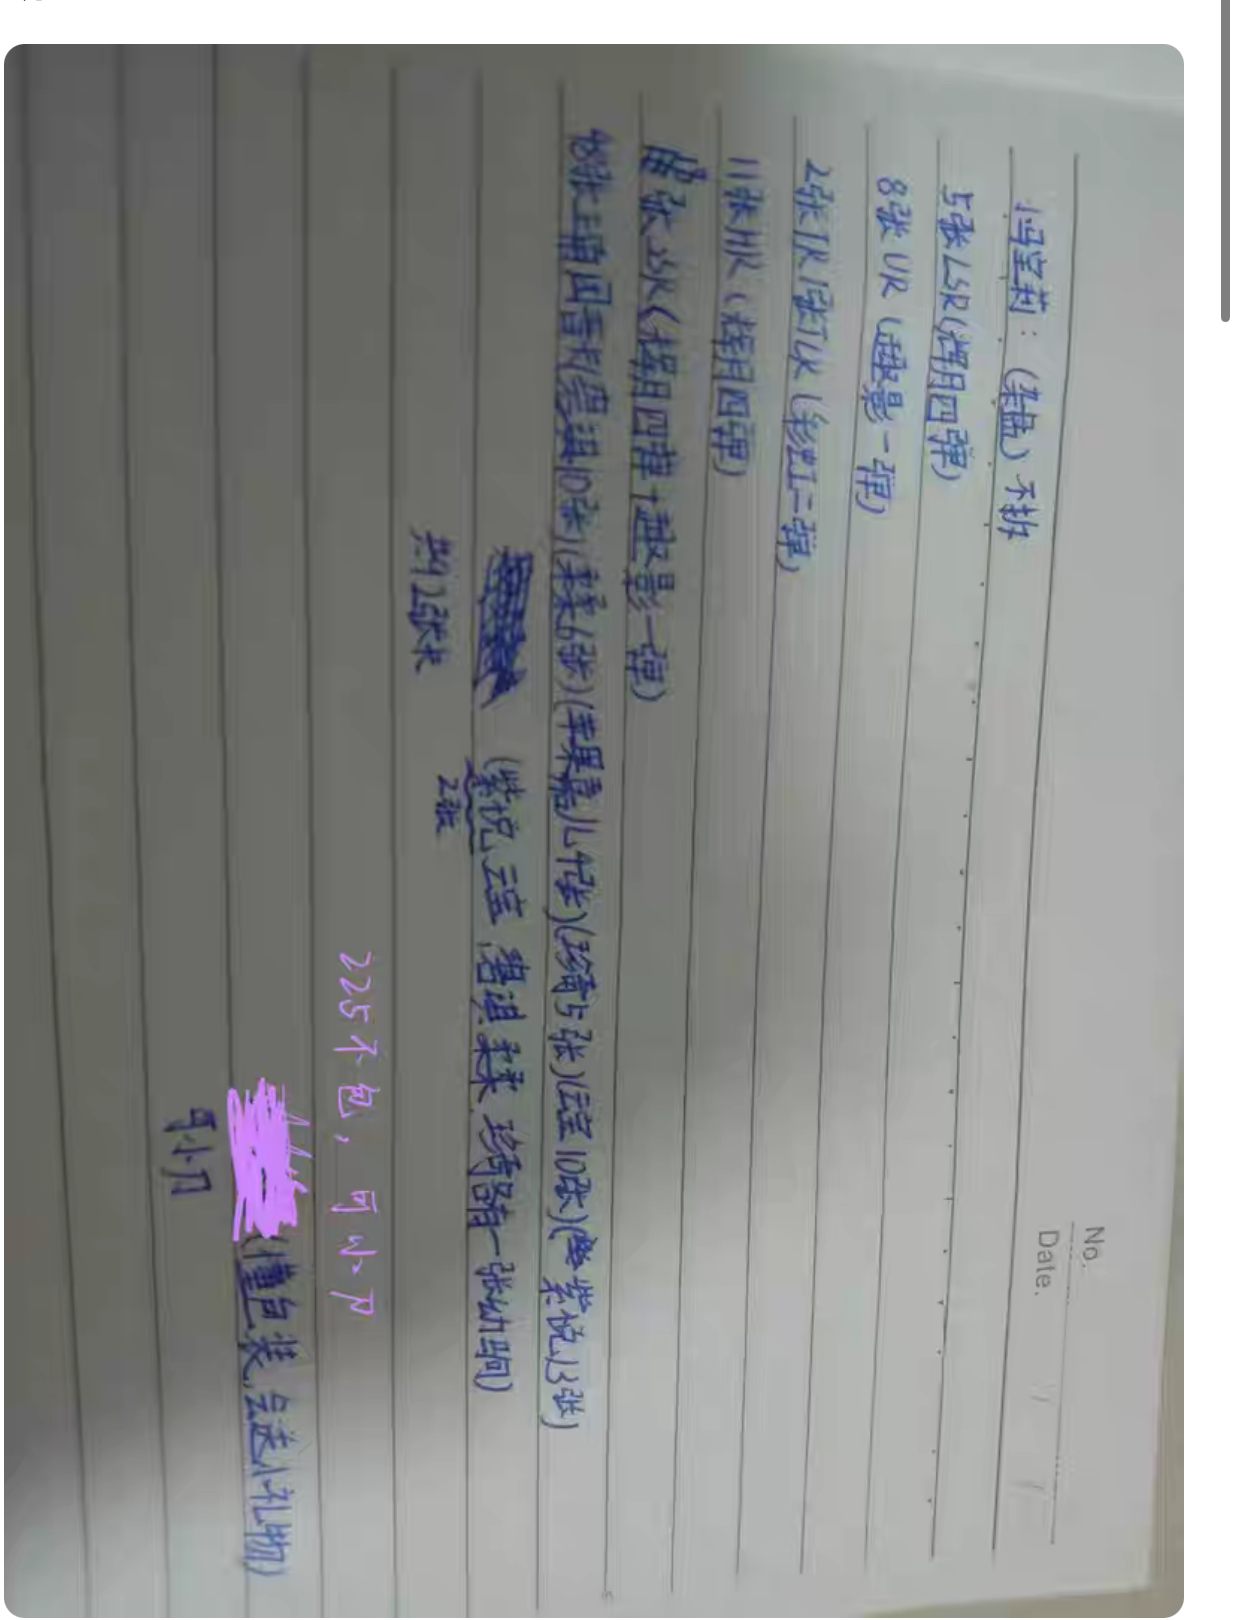 No.
Date.
小马宝莉：(杂盘) 不拆
5张LSR(辉月四弹)
8张UR (趣影一弹)
2张TR 1张TGR (彩虹二弹)
11张HR (辉月四弹)
张SSR(辉月四弹+趣影一弹)
48张三角回香卡(碧琪10张)(柔柔6张)(苹果嘉儿4张)(珍奇5张)(云宝10张)(紫悦13张)
(紫悦 云宝 碧琪 柔柔 珍奇各有一张幼驹)
2张
共 张卡
225不包，可小P
(懂包装，会送小礼物)
可小刀